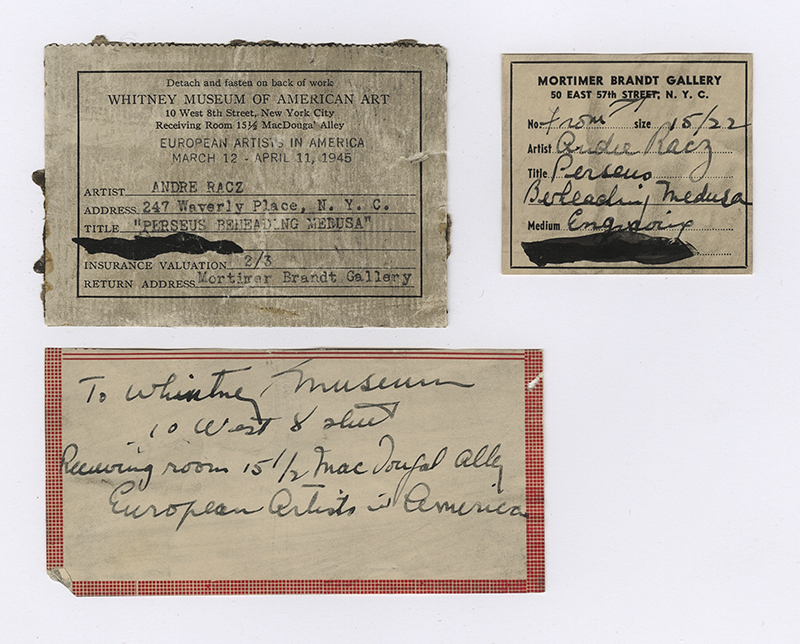 Detach and fasten on back of work
WHITNEY MUSEUM OF AMERICAN ART
10 West 8th Street, New York City
Receiving Room 15½ MacDouga' Alley
EUROPEAN ARTISTS IN AMERICA
MARCH 12 - APRIL 11, 1945
ARTIST ANDRE RACZ
ADDRESS 247 Waverly Place, N. Y. C.
TITLE "PERSEUS BEHEADING MEDUSA"
INSURANCE VALUATION 2/3
RETURN ADDRESS Mortimer Brandt Gallery
MORTIMER BRANDT GALLERY
50 EAST 57th STREET, N. Y. C.
No. from size 15/22
Artist André Racz
Title Perseus
Beheading Medusa
Medium Engraving
To Whitney Museum
10 West 8 street
Receiving room 15 1/2 Mac Dougal Alley
European Artists in America